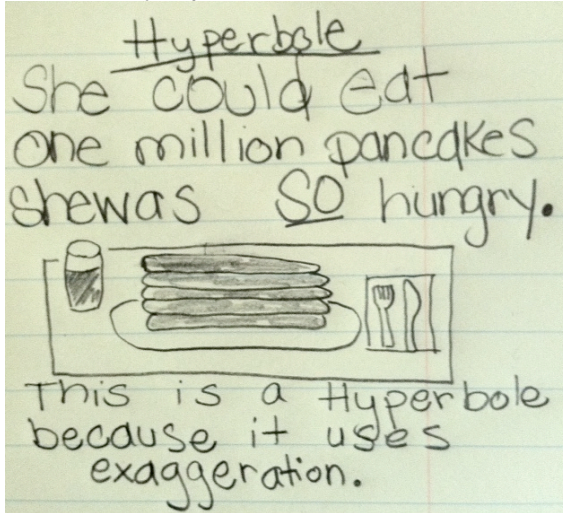 Hyperbole
She could eat
one million pancakes
shewas SO hungry.
This is a Hyperbole
because it uses
exaggeration.